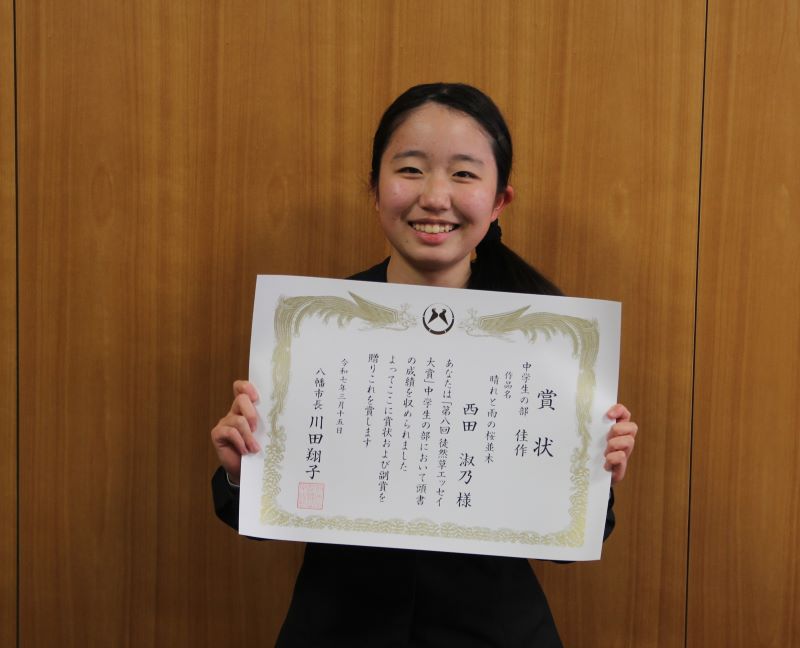 賞状
中学生の部 佳作
作品名
晴れと雨の桜並木
西田 淑乃 様
あなたは「第八回 徒然草エッセイ
大賞」中学生の部において頭書
の成績を収められました
よってここに賞状および副賞を
贈りこれを賞します
令和七年三月十五日
八幡市長 川田翔子